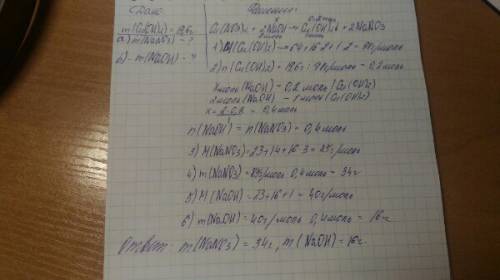 Дано:
m(Cu(OH)₂) = 19,6г
а) m(NaNO₃) - ?
б) - m(NaOH) - ?
Решение:
x 0,2моль
Cu(NO₃)₂ + 2NaOH → Cu(OH)₂↓ + 2NaNO₃
2моль 1моль
1) M(Cu(OH)₂) = 64 + 16·2 + 1·2 = 98г/моль
2) n(Cu(OH)₂) = 19,6г : 98г/моль = 0,2моль
xмоль(NaOH) - 0,2моль(Cu(OH)₂)
2моль(NaOH) - 1моль(Cu(OH)₂)
x = 2·0,2 / 1 = 0,4моль
n(NaOH) = n(NaNO₃) = 0,4моль
3) M(NaNO₃) = 23 + 14 + 16·3 = 85г/моль
4) m(NaNO₃) = 85г/моль · 0,4моль = 34г
5) M(NaOH) = 23 + 16 + 1 = 40г/моль
6) m(NaOH) = 40г/моль · 0,4моль = 16г
Ответ: m(NaNO₃) = 34г, m(NaOH) = 16г